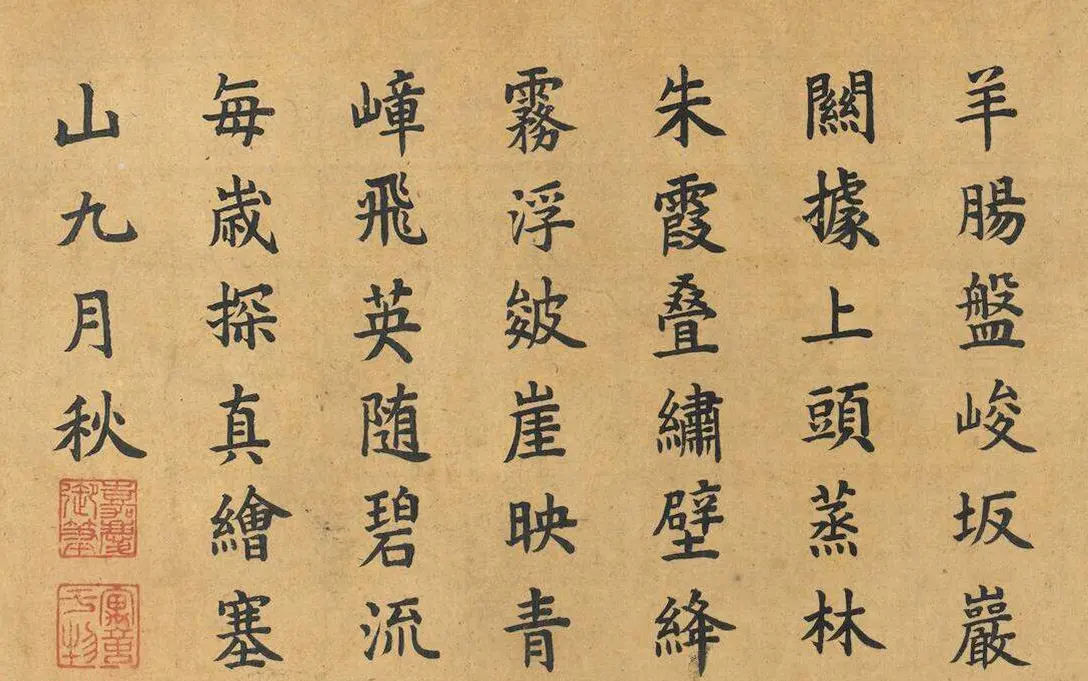 羊腸盤峻坂巖
關據上頭蒸林
朱霞叠繡壁絳
霧浮皴崖映青
嶂飛英随碧流
每歳探真繪塞
山九月秋
嘉慶御筆